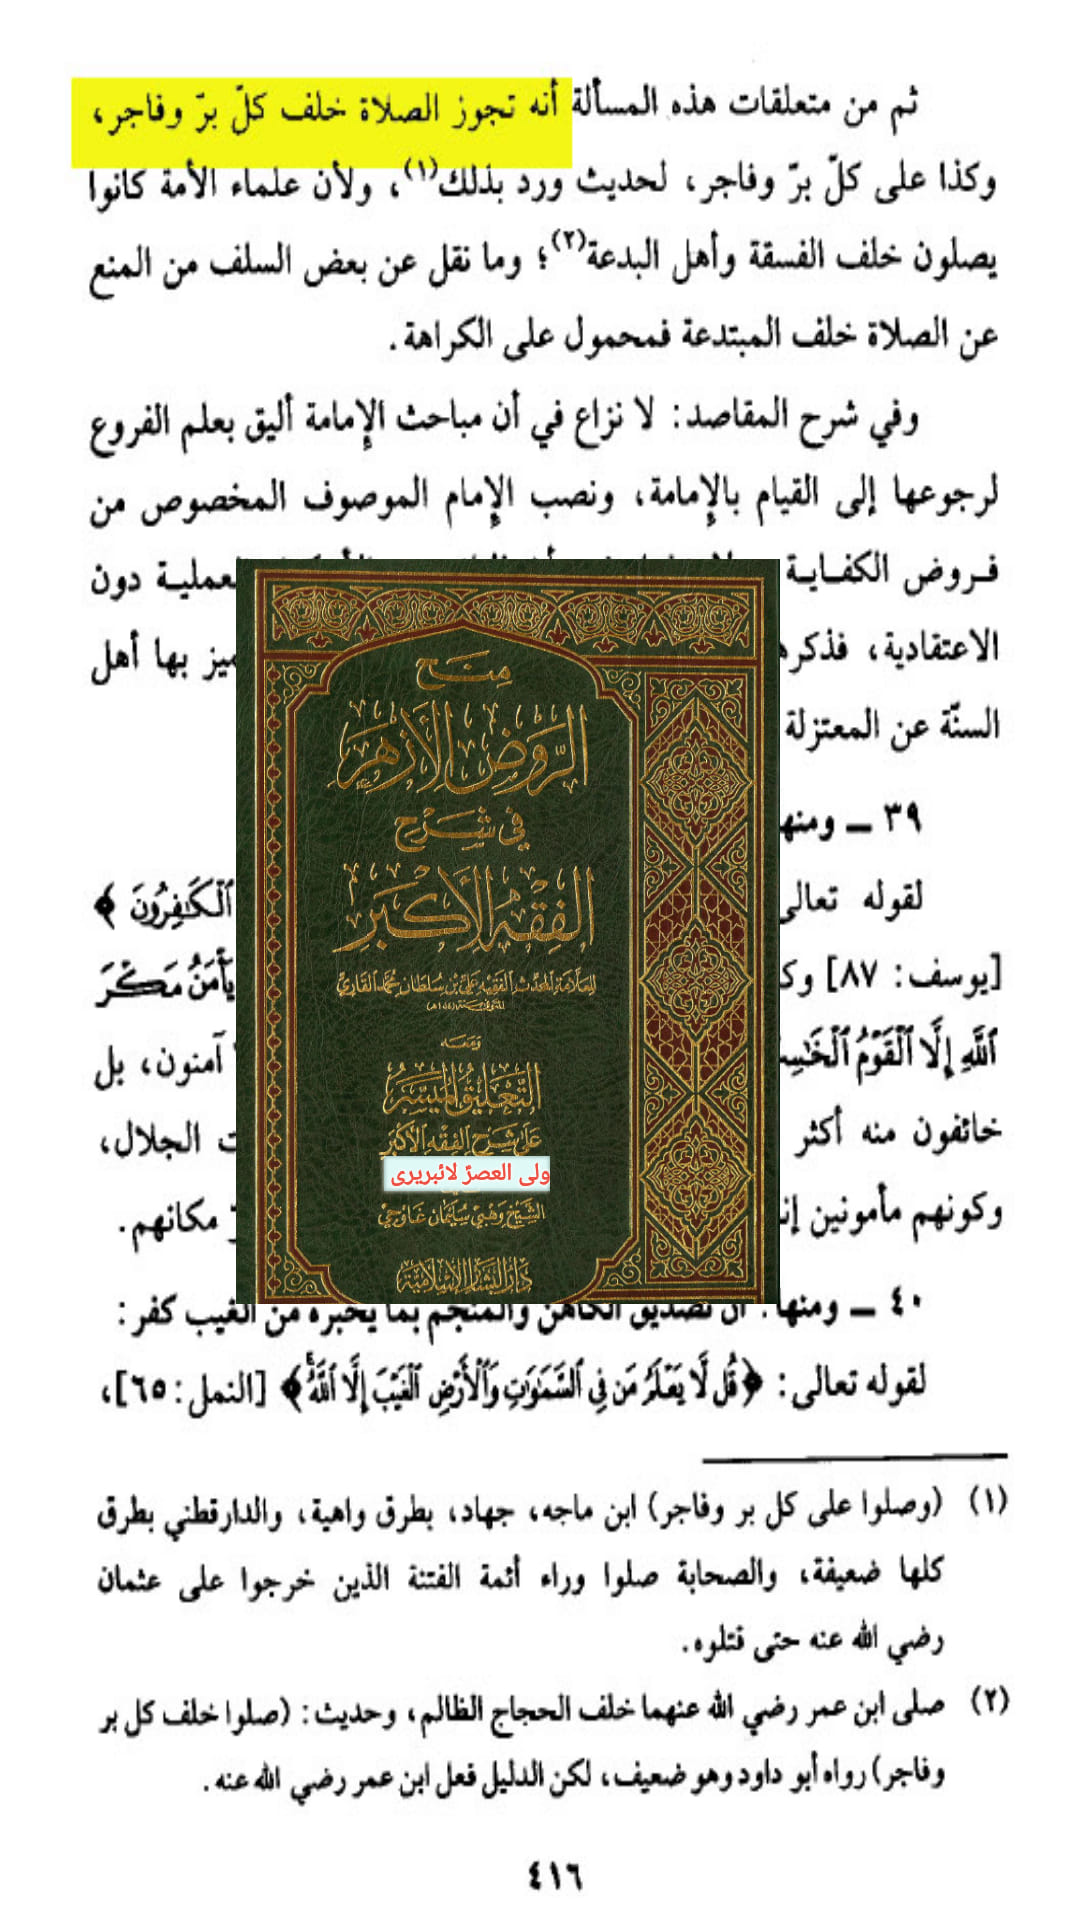 ثم من متعلقات هذه المسألة أنه تجوز الصلاة خلف كلّ برّ وفاجر،
وكذا على كلّ برّ وفاجر، لحديث ورد بذلك(١)، ولأن علماء الأمة كانوا
يصلون خلف الفسقة وأهل البدعة(٢)؛ وما نقل عن بعض السلف من المنع
عن الصلاة خلف المبتدعة فمحمول على الكراهة.
وفي شرح المقاصد: لا نزاع في أن مباحث الإمامة أليق بعلم الفروع
لرجوعها إلى القيام بالإمامة، ونصب الإمام الموصوف المخصوص من
فروض الكفاية عملية دون
الاعتقادية، فذكره ميز بها أهل
السنّة عن المعتزلة
٣٩ ــ ومنها
لقوله تعالى ٱلْكَٰفِرُونَ ﴾
[يوسف: ٨٧] يَأْمَنُ مَكْرَ
ٱللَّهِ إِلَّا ٱلْقَوْمُ آمنون، بل
خائفون منه أكثر الجلال،
وكونهم مأمونين مكانهم.
٤٠ ــ ومنها: أن تصديق الكاهن والمنجم بما يخبره من الغيب كفر:
لقوله تعالى: ﴿قُل لَّا يَعْلَمُ مَن فِى ٱلسَّمَٰوَٰتِ وَٱلْأَرْضِ ٱلْغَيْبَ إِلَّا ٱللَّهُ﴾ [النمل: ٦٥]،
(١) (وصلوا على كل بر وفاجر) ابن ماجه، جهاد، بطرق واهية، والدارقطني بطرق
كلها ضعيفة، والصحابة صلوا وراء أئمة الفتنة الذين خرجوا على عثمان
رضي الله عنه حتى قتلوه.
(٢) صلى ابن عمر رضي الله عنهما خلف الحجاج الظالم، وحديث: (صلوا خلف كل بر
وفاجر) رواه أبو داود وهو ضعيف، لكن الدليل فعل ابن عمر رضي الله عنه.
٤١٦
مِنَح
الرَّوْضِ الأَزْهَر
فِي شَرْح
الفِقْهِ الأَكْبَر
للعلامة المحدث الفقيه علي بن سلطان محمد القاري
وَمَعَه
التَّعليقُ المُيَسَّرُ
عَلَى شَرْحِ الفِقْهِ الأَكْبَر
ولی العصرؑ لائبریری
الشيخ وهبي سليمان غاوجي
دار البشائر الإسلامية